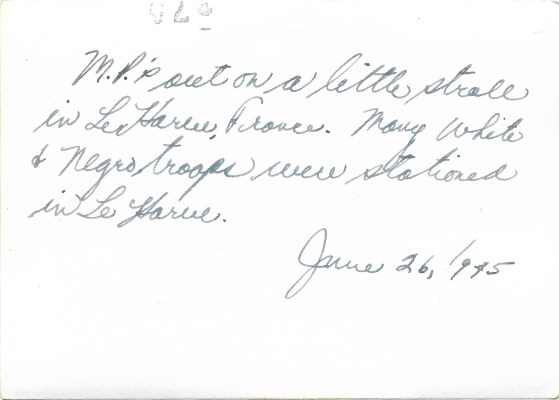 M.P.'s out on a little stroll
in Le Harve, France. Many White
& Negro troops were stationed
in Le Harve.
June 26, 1945